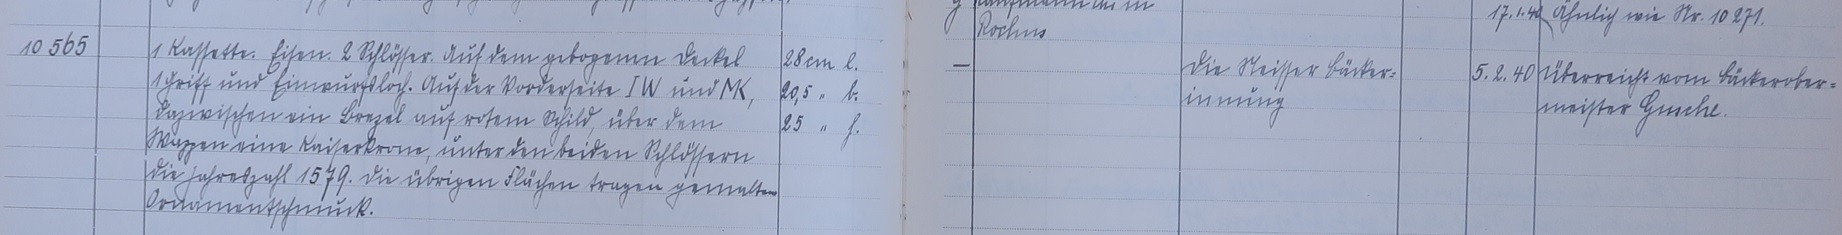 17.1.40 Ähnlich wie Nr. 10271.
10565
1 Kassette. Eisen. 2 Schlösser. Auf dem gebogenen Deckel
1 Griff und Einwurfsloch. Auf der Vorderseite IW und MK,
dazwischen ein Brezel auf rotem Schild, über dem
Wappen eine Kaiserkrone, unter den beiden Schlössern
die Jahreszahl 1579. Die übrigen Flächen tragen gemalten
Ornamentschmuck.
28 cm l.
20,5 " b.
25 " h.
—
Die Neisser Bäcker=
innung
5.2.40
Überreicht vom Bäckerober=
meister